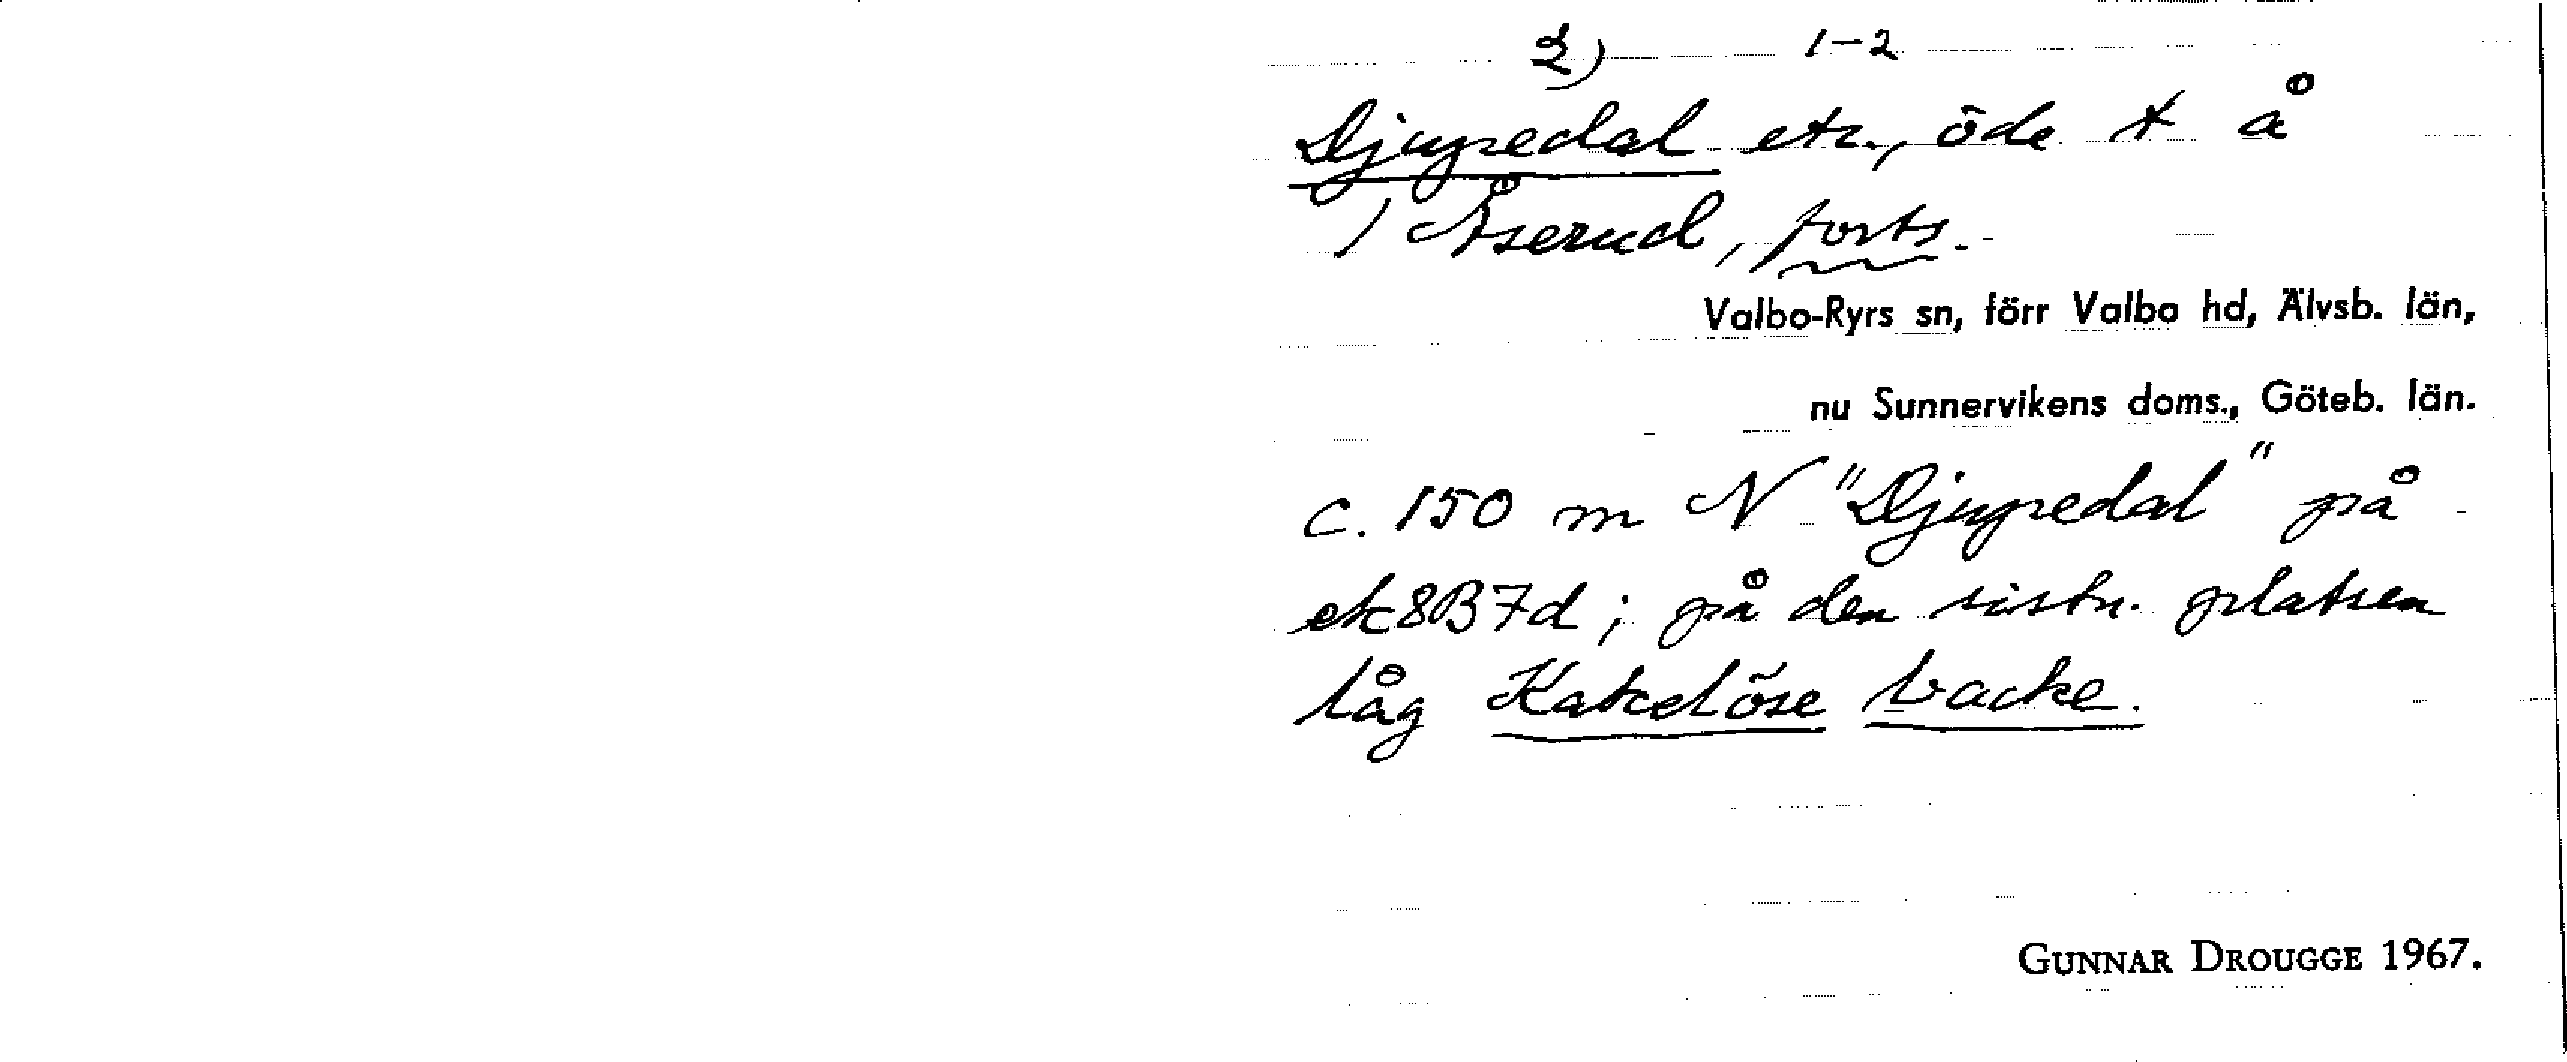 2) 1-2
Djupedal etc., öde t å
1 Åserud, forts.
Valbo-Ryrs sn, förr Valbo hd, Älvsb. län,
nu Sunnervikens doms., Göteb. län.
c. 150 m N "Djupedal" på
ek 8B7d; på den sistn. platsen
låg Katselöse backe.
GUNNAR DROUGGE 1967.